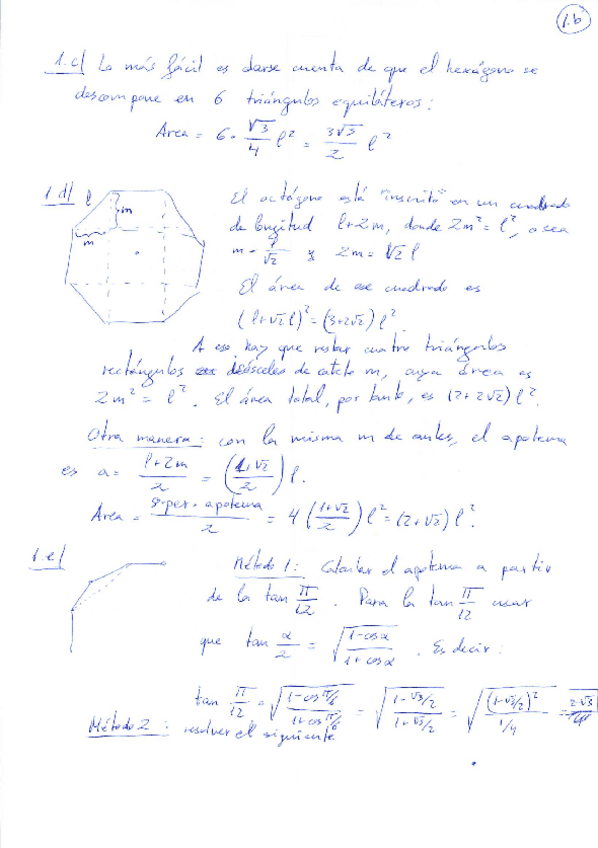 1.b
1.c) Lo más fácil es darse cuenta de que el hexágono se
descompone en 6 triángulos equiláteros:
Area = 6 · √3/4 l² = 3√3/2 l²
1.d) l m m
El octógono está "inscrito" en un cuadrado
de longitud l+2m, donde 2m² = l², o sea
m = l/√2 y 2m = √2 l
El área de ese cuadrado es
(l+√2 l)² = (3+2√2) l².
A eso hay que restar cuatro triángulos
rectángulos isósceles de cateto m, cuya área es
2m² = l². El área total, por tanto, es (2+2√2) l².
Otra manera: con la misma m de antes, el apotema
es a = l+2m/2 = (1+√2/2) l.
Area = per · apotema/2 = 4 (1+√2/2) l² = (2+√2) l².
1.e)
Método 1: Calcular el apotema a partir
de la tan π/12. Para la tan π/12 usar
que tan α/2 = √(1-cos α/1+cos α). Es decir:
tan π/12 = √(1-cos π/6/1+cos π/6) = √(1-√3/2/1+√3/2) = √((1-√3/2)²/1/4) = 2-√3
Método 2: resolver el siguiente